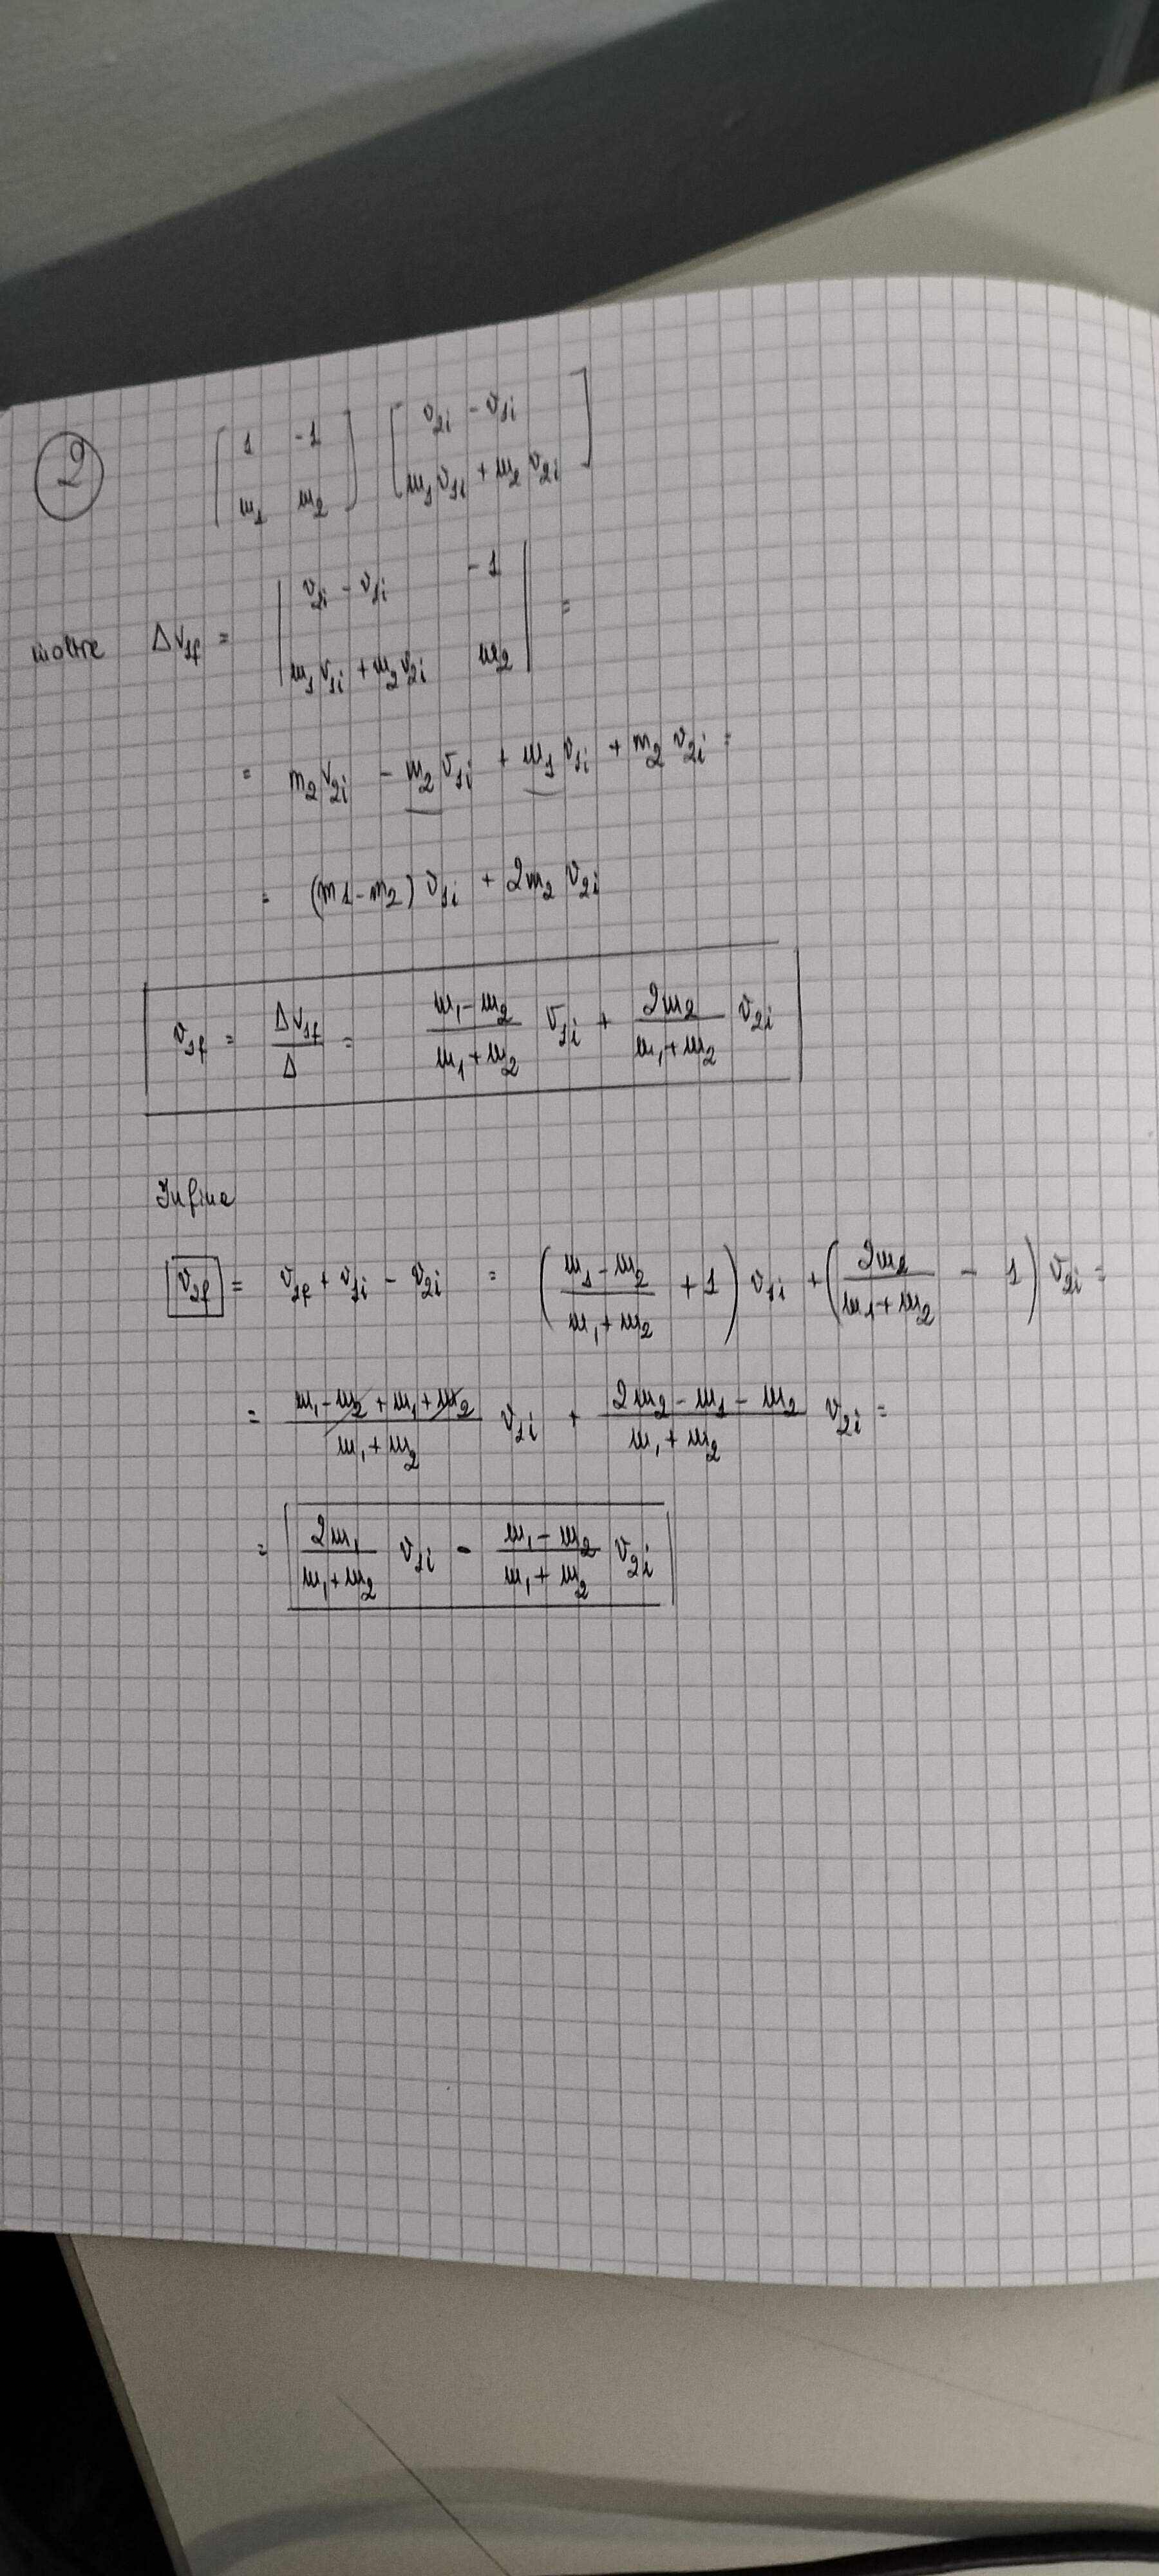 2
[ 1 -1 ] [ v₂ᵢ - v₁ᵢ ]
[ m₁ m₂ ] [ m₁v₁ᵢ + m₂v₂ᵢ ]
inoltre Δv₁f = | v₂ᵢ - v₁ᵢ -1 | =
| m₁v₁ᵢ + m₂v₂ᵢ m₂ |
= m₂v₂ᵢ - m₂v₁ᵢ + m₁v₁ᵢ + m₂v₂ᵢ =
= (m1-m₂) v₁ᵢ + 2m₂ v₂ᵢ
v₁f = Δv₁f/Δ = (m₁-m₂)/(m₁+m₂) v₁ᵢ + 2m₂/(m₁+m₂) v₂ᵢ
Infine
v₂f = v₁f + v₁ᵢ - v₂ᵢ = ((m₁-m₂)/(m₁+m₂) + 1) v₁ᵢ + (2m₂/(m₁+m₂) - 1) v₂ᵢ =
= (m₁-m₂+m₁+m₂)/(m₁+m₂) v₁ᵢ + (2m₂-m₁-m₂)/(m₁+m₂) v₂ᵢ =
= 2m₁/(m₁+m₂) v₁ᵢ - (m₁-m₂)/(m₁+m₂) v₂ᵢ